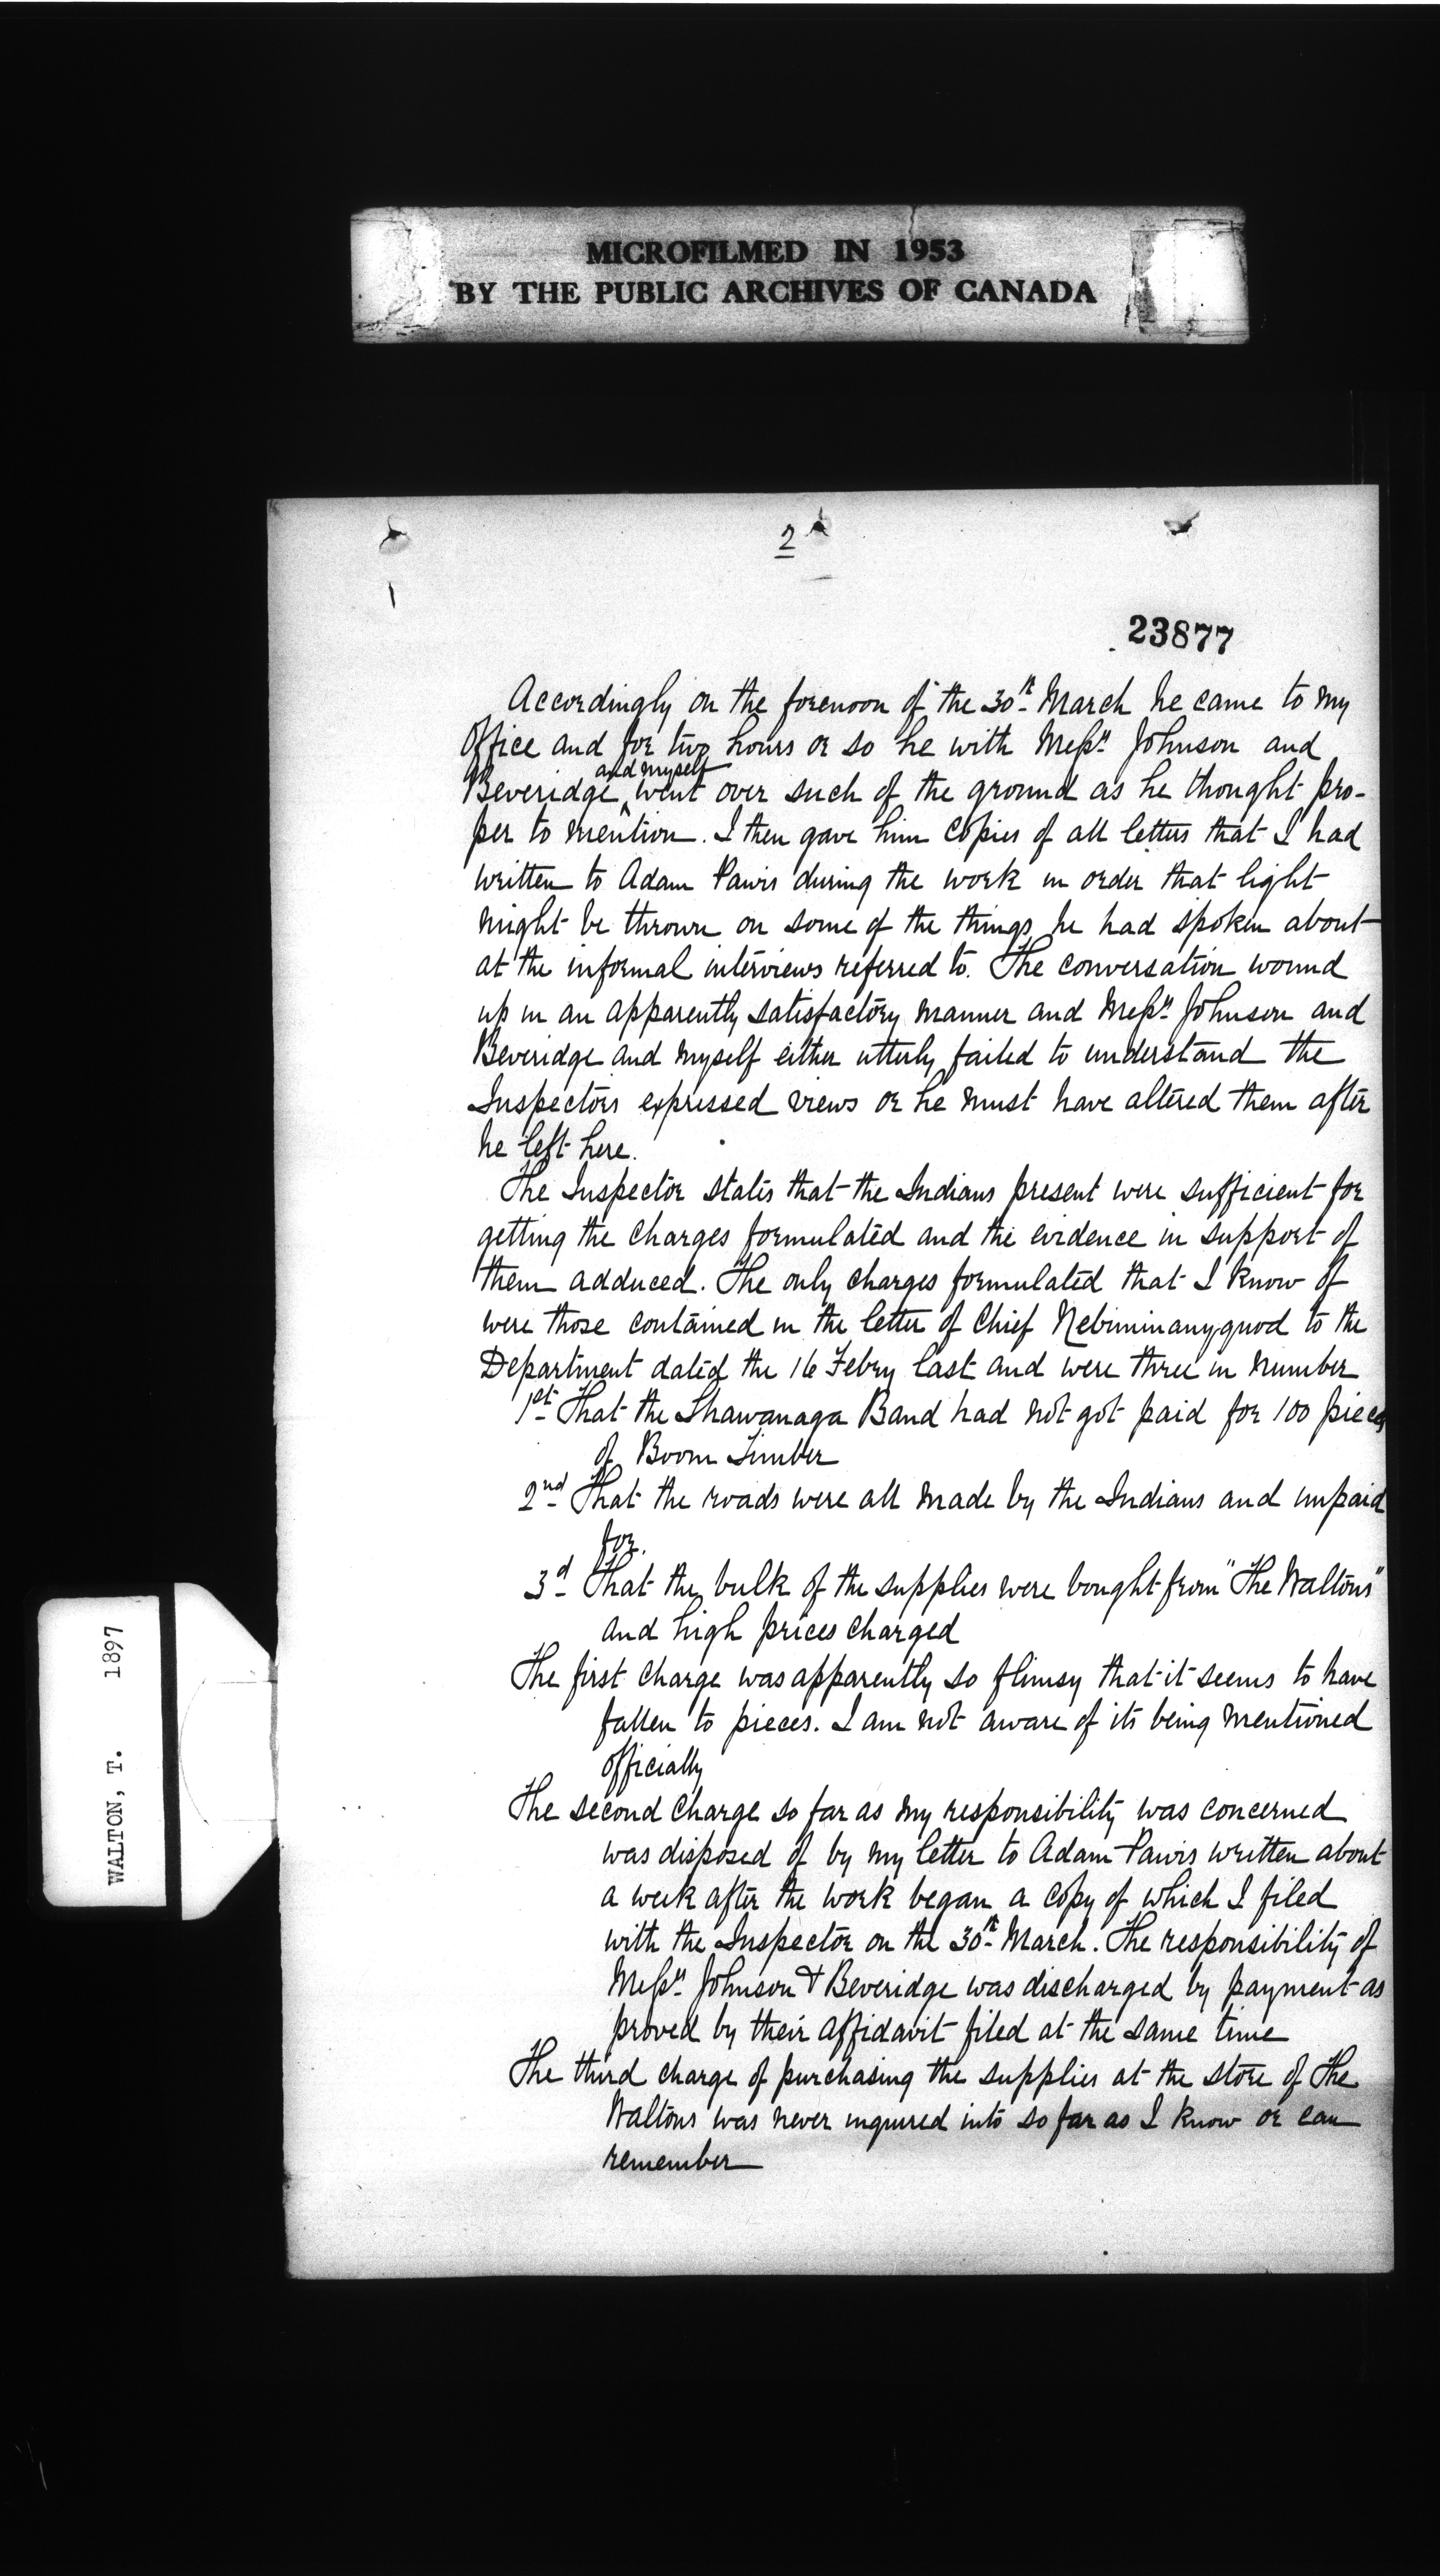 MICROFILMED IN 1953
BY THE PUBLIC ARCHIVES OF CANADA
2
23877
Accordingly on the forenoon of the 30th March he came to my
Office and for two hours or so he with Messrs Johnson and
Beveridge and myself went over such of the ground as he thought pro-
per to mention. I then gave him copies of all letters that I had
written to Adam Pawis during the work in order that light
might be thrown on some of the things he had spoken about
at the informal interviews referred to. The conversation wound
up in an apparently satisfactory manner and Messrs Johnson and
Beveridge and myself either utterly failed to understand the
Inspectors expressed views or he must have altered them after
he left here.
The Inspector states that the Indians present were sufficient for
getting the charges formulated and the evidence in support of
them adduced. The only charges formulated that I know of
were those contained in the letter of Chief Nebiminanyquod to the
Department dated the 16 Febry last and were three in number
1st That the Shawanaga Band had not got paid for 100 pieces
of Boom Timber
2nd That the roads were all made by the Indians and unpaid
for.
3d That the bulk of the supplies were bought from "The Waltons"
and high prices charged
The first charge was apparently so flimsy that it seems to have
fallen to pieces. I am not aware of its being mentioned
officially
The second charge so far as my responsibility was concerned
was disposed of by my letter to Adam Pawis written about
a week after the work began a copy of which I filed
with the Inspector on the 30th March. The responsibility of
Messrs Johnson & Beveridge was discharged by payment as
proved by their affidavit filed at the same time
The third charge of purchasing the supplies at the store of The
Waltons was never inquired into so far as I know or can
remember
WALTON, T. 1897